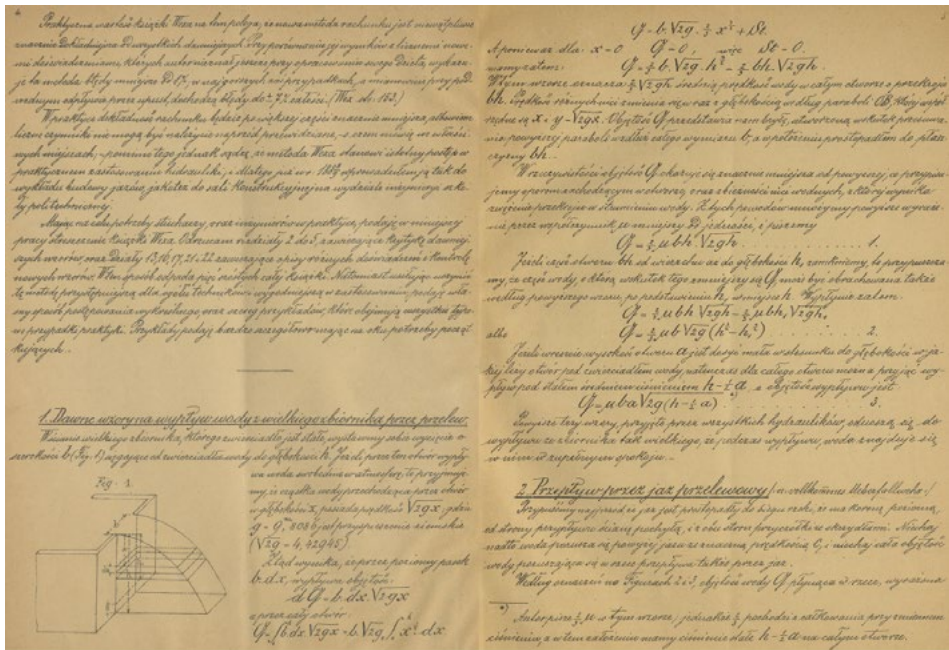 4
Praktyczna wartość książki Wexa na tem polega, że nowa metoda rachunku jest niewątpliwie
znacznie dokładniejsza od wszystkich dawniejszych. Przy porównaniu jej wyników z licznemi
doświadczeniami, których autor nie znał jeszcze przy opracowaniu swego dzieła, wykazuje
ta metoda błędy mniejsze od 1%, w najgorszych zaś przypadkach, a mianowicie przy
wypływie przez upust, dochodzą błędy do ± 7% całości. (Wex str. 182)
W praktyce dokładność rachunku będzie po większej części znacznie mniejsza, albowiem
liczne czynniki nie mogą być należycie naprzód przewidziane, o czem mówię we właściwych
miejscach; - pomimo tego jednak sądzę, że metoda Wexa stanowi istotny postęp w
praktycznem zastosowaniu hydrauliki, i dlatego już w r. 1889 wprowadziłem ją tak do
wykładu budowy jazów, jakoteż do sali konstrukcyjnej na wydziale inżynieryi szkoły
politechnicznej.
Mając na celu potrzeby słuchaczy, oraz inżynierów w praktyce, podaję w niniejszej
pracy streszczenie książki Wexa. Odrzucam rozdziały 2 do 5, zawierające krytykę dawniejszych
wzorów, oraz działy 13, 16, 17, 21 i 22 zawierające opisy różnych doświadczeń i kontrolę
nowych wzorów. W ten sposób odpada pięć szóstych całej książki. Natomiast usiłując uczynić
tę metodę przystępniejszą dla ogółu techników i wygodniejszą w zastosowaniu, podaję
własny sposób postępowania wykreślnego oraz szereg przykładów, które obejmują wszystkie
przypadki praktyki. Przykłady podaję bardzo szczegółowo mając na oku potrzeby
początkujących.
1. Dawne wzory na wypływ wody z wielkiego zbiornika przez przelew.
W ścianie wielkiego zbiornika, którego zwierciadło jest stałe, wystawmy sobie wycięcie o
szerokości b (Fig. 1) sięgające od zwierciadła wody do głębokości h. Jeżeli przez ten otwór
woda swobodnie w atmosferę, to przyjmujemy,
że cząstka wody przechodząca przez otwór
w głębokości x, posiada prędkość √2gx; gdzie
g = 9,m 808 jest przyspieszenie ziemskie
(√2g = 4,42945)
Ztąd wynika, że przez poziomy pasek
b.dx, wypływa objętość:
dQ = b.dx.√2gx
a przez cały otwór:
Q = ∫b dx √2gx = b.√2g, ∫x½ dx
Fig. 1.
Q = b.√2g.⅔ x + St.
A ponieważ dla: x = 0 Q = 0, więc St = 0.
mamy zatem:
Q = ⅔ b.√2g. h = ⅔ bh.√2gh.
W tym wzorze oznacza: ⅔√2gh średnią prędkość wody w całym otworze o przekroju
bh. Prędkość różnych nici zmienia się wraz z głębokością według paraboli
są x i y = √2gx. Objętość Q przedstawia nam bryłę, utworzoną wskutek
powyższej paraboli wzdłuż całego wymiaru b, a w położeniu prostopadłem do płaszczyzny
bh.
W rzeczywistości objętość Q okazuje się znacznie mniejszą od powyższej, co
oporom zachodzącym w otworze, oraz zbieżności nici wodnych, z której wynika
zwężenie przekroju w strumieniu wody. Z tych powodów mnożymy powyższe
przez współczynnik μ mniejszy od jedności, i piszemy
Q = ⅔ μ b h.√2gh 1.
Jeżeli część otworu bh od wierzchu aż do głębokości h, zamkniemy, to przypuszczamy,
że część wody, o którą wskutek tego zmniejszy się Q, może być obrachowana także
według powyższego wzoru, po podstawieniu h, w miejsce h. Wypływa zatem:
Q = ⅔ μ bh √2gh - ⅔ μ bh, √2gh,
albo Q = ⅔ μ b √2g (h - h,) 2.
Jeżeli wreszcie wysokość otworu a jest dosyć mała w stosunku do głębokości w jakiej
leży otwór pod zwierciadłem wody, natenczas dla całego otworu można przyjąć
wypływ pod stałem średniem ciśnieniem h - ½a, a objętość wypływu jest:
Q = μ b a √2g (h - ½a) 3.
Powyższe trzy wzory, przyjęte przez wszystkich hydraulików, odnoszą się do
wypływu ze zbiornika tak wielkiego, że podczas wypływu, woda znajduje się
w nim w zupełnym spokoju.
2. Przepływ przez jaz przelewowy (vollkommes Ueberfallwehr)
Przypuśćmy najprzód że jaz jest prostopadły do biegu rzeki, że ma koronę poziomą,
od strony przypływu ścianę pochyłą, i z obu stron przyczółki ze skrzydłami. Niechaj
nadto woda porusza się powyżej jazu ze znaczną prędkością C, i niechaj cała objętość
wody poruszająca się w rzece przepływa także przez jaz.
Według oznaczeń na Figurach 2 i 3, objętość wody Q płynąca w rzece, wyrażona
*) Autor pisze ⅔ μ w tym wzorze, jednakże ⅔ pochodzi z całkowania przy zmiennem
ciśnieniu, a w tem założeniu mamy ciśnienie stałe h - ½a na całym otworze.